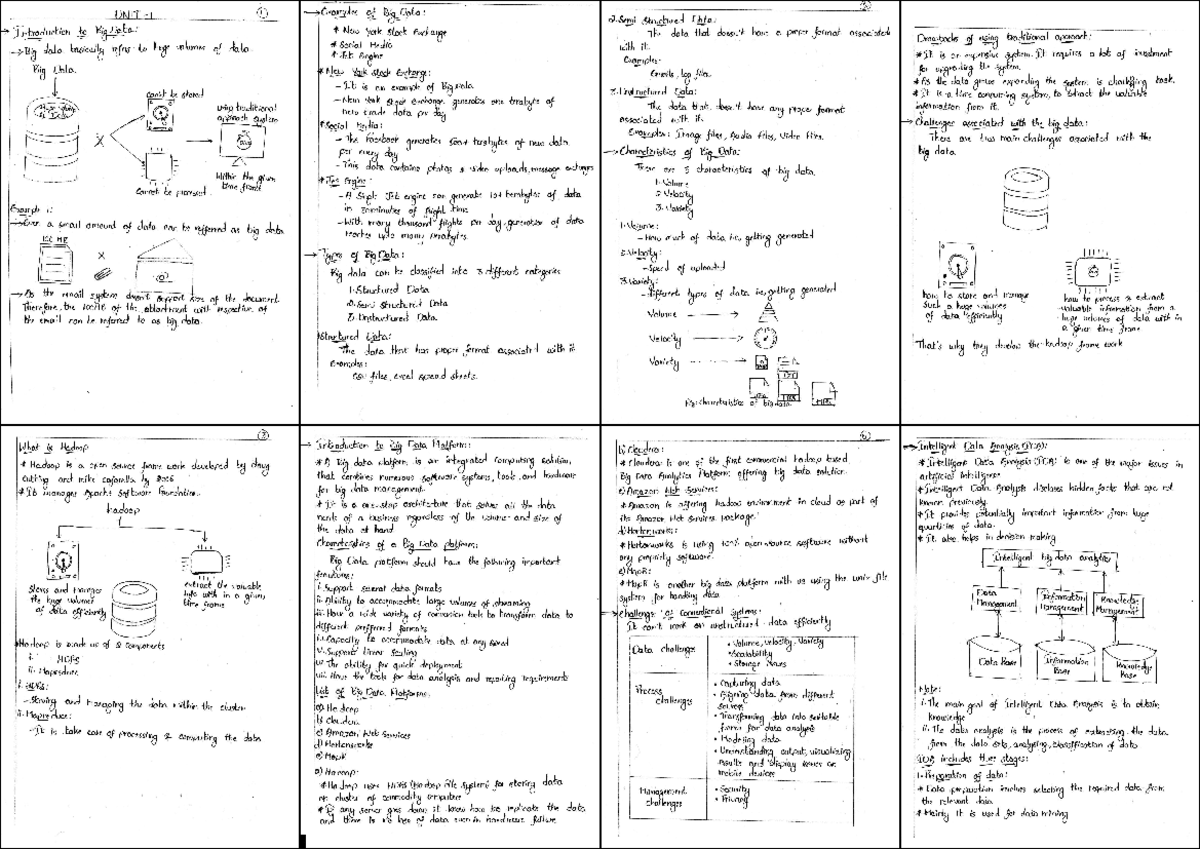 UNIT-1
①
Introduction to Big Data:
→ Big data basically refers to large volumes of data.
Big Data.
can't be stored
using traditional
approach system
Cannot be processed
Within the given
time frame
Example:
a small amount of data can be reffered as big data
100 MB
→ As the email system doesn't support size of the document
Therefore, the 100MB of the attachment with respective of
the email can be referred to as big data.
Examples of Big Data:
* New York Stock Exchange
* Social Media
* Jet Engine
* New York Stock Exchange:
- It is an example of Big data
- New York Stock exchange generates one terabyte of
new trade data per day
* Social Media:
- The Facebook generates 500+ terabytes of new data
per every day
- This data contains photos & video uploads, message exchanges
* Jet Engine:
- A Single Jet engine can generate 10+ terabytes of data
in 30 minutes of flight time
- With many thousand flights per day, generation of data
reaches upto many petabytes.
→ Types of Big Data:
Big data can be classified into 3 different categories
1. Structured Data
2. Semi Structured Data
3. Unstructured Data
Structured Data:
The data that has proper format associated with it
Examples:
csv files, excel spread sheets.
②
2. Semi Structured Data:
The data that doesn't have a proper format associated
with it.
Examples:
Emails, log files
3. Unstructured Data:
The data that doesn't have any proper format
associated with it.
Examples: Image files, Audio files, Video files.
→ Characteristics of Big Data:
There are 3 characteristics of big data.
1. Volume
2. Velocity
3. Variety
1. Volume:
- How much of data is getting generated
2. Velocity:
- Speed of uploaded
3. Variety:
- different types of data is getting generated
Volume
Velocity
Variety
Fig: characteristics of big data
Drawbacks of using traditional approach:
* It is an expensive system. It requires a lot of investment
for upgrading the system
* As the data grows expanding the system is challenging task.
* It is a time consuming system, to extract the valuable
information from it.
→ Challenges associated with the big data:
There are two main challenges associated with the
big data.
how to store and manage
such a huge volumes
of data efficiently
how to process & extract
valuable information from a
huge volumes of data with in
a given time frame
That's why they develop the hadoop frame work
③
What is Hadoop
* Hadoop is a open source frame work developed by doug
cutting and mike cafarella by 2005
* It manages Apache Software foundation.
hadoop
Stores and manages
the huge volumes
of data efficiently
extract the valuable
info with in a given
time frame
Hadoop is made up of 2 components
i. HDFS
ii. Mapreduce
i. HDFS:
- Storing and managing the data within the cluster
ii. Mapreduce:
- It is take care of processing & computing the data
→ Introduction to Big Data Platform:
* A Big data platform is an integrated computing solution,
that combines numerous software systems, tools and hardware
for big data management.
* It is a one-stop architecture that solves all the data
needs of a business regardless of the volume and size of
the data at hand
Characteristics of a Big Data platform:
Big Data platform should have the following important
features:
i. Support several data formats
ii. Ability to accommodate large volumes of streaming
iii. Have a wide variety of conversion tools to transform data to
different preferred formats
iv. Capacity to accommodate data at any speed
v. Support linear scaling
vi. The ability for quick deployment
vii. Have the tools for data analysis and reporting requirements
List of Big Data Platforms:
a) Hadoop
b) Cloudera
c) Amazon Web Services
d) Hortonworks
e) MapR
a) Hadoop:
* Hadoop uses HDFS (Hadoop File System) for storing data
on cluster of commodity computers
* If any server goes down it know how to replicate the data
and there is no loss of data even in hardware failure
b) Cloudera:
* Cloudera is one of the first commercial hadoop based
Big Data Analytics Platform offering big data solution.
c) Amazon Web Services:
* Amazon is offering hadoop environment in cloud as part of
its Amazon Web services package.
d) Hortonworks:
* Hortonworks is using 100% open source software without
any propriety software
e) MapR:
* MapR is another big data platform with us using the unix file
system for handling data.
→ Challenges of conventional systems:
It can't work on unstructured data efficiently
Data challenges
• Volume, velocity, Variety
• Scalability
• Storage issues
Process
challenges
• Capturing data
• Aligning data from different
sources
• Transforming data into suitable
form for data analysis
• Modeling data
• Understanding output, visualizing
results and display issues on
mobile devices
Management
challenges
• Security
• Privacy
→ Intelligent Data Analysis (IDA):
* Intelligent Data Analysis (IDA) is one of the major issues in
artificial intelligence
* Intelligent Data Analysis discloses hidden facts that are not
known previously
* It provides potentially important information from huge
quantities of data.
* It also helps in decision making
Intelligent big data analytics
Data
Management
Information
Management
Knowledge
Management
Data Base
Information
Base
Knowledge
Base
Note:
i. The main goal of Intelligent Data Analysis is to obtain
knowledge
ii. The data analysis is the process of extracting the data
from the data sets, analysing, classification of data
IDA includes three stages:
1. Preparation of data:
* Data preparation involves selecting the required data from
the relevant data
* Mainly it is used for data mining